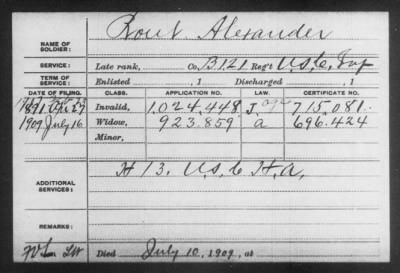 NAME OF SOLDIER: Rout Alexander
SERVICE: Late rank, Co. B. 121. Reg't U.S.C. Inf
TERM OF SERVICE: Enlisted , 1 Discharged , 1
DATE OF FILING. CLASS. APPLICATION NO. LAW. CERTIFICATE NO.
1891 27 Invalid, 1.024.448 J. 715.081.
1909 July 16 Widow, 923.859 a 696.424
Minor,
ADDITIONAL SERVICES: H 13. U.S.C.H.A.
REMARKS:
Died July 10, 1909, at